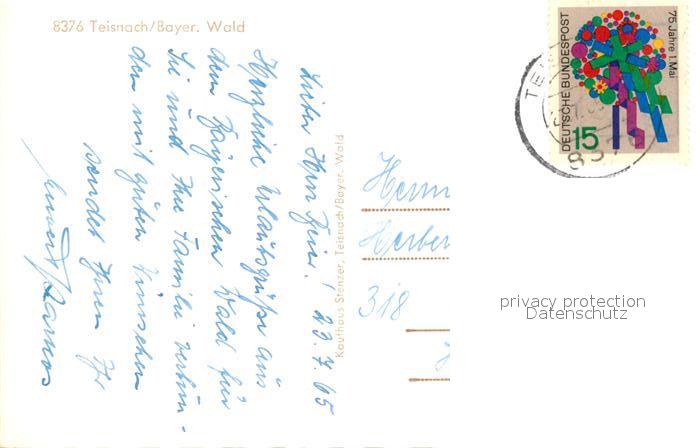 8376 Teisnach/Bayer. Wald
Lieber Herr
23.7.65
Herzliche Urlaubsgrüße aus
dem Bayerischen Wald für
Sie und Ihre Familie verbun-
den mit guten Wünschen
sendet Ihnen Ihr
Kaufhaus Stenzer, Teisnach/Bayer. Wald
Herrn
Herber
318
DEUTSCHE BUNDESPOST
75 Jahre 1. Mai
15
TEI
837
privacy protection
Datenschutz